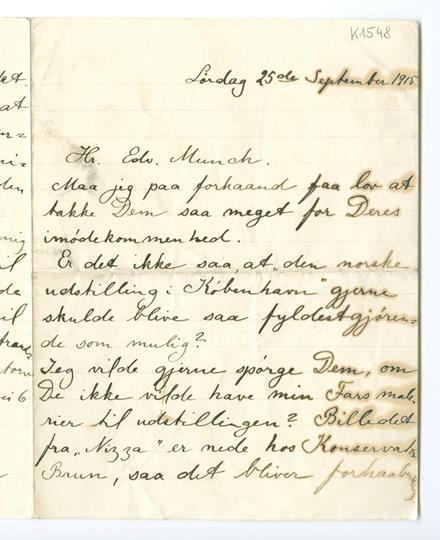 K1548
Lördag 25de September 1915
Hr. Edv. Munch.
Maa jeg paa forhaand faa lov at
takke Dem saa meget for Deres
imödekommenhed.
Er det ikke saa, at „den norske
udstilling i Köbenhavn" gjerne
skulde blive saa fyldestgjören=
de som mulig?
Jeg vilde gjerne spörge Dem, om
De ikke vilde have min Fars male
rier til udstillingen? Billedet
fra „Nizza" er nede hos Konservator
Brun, saa det bliver
at
den
til
de
til